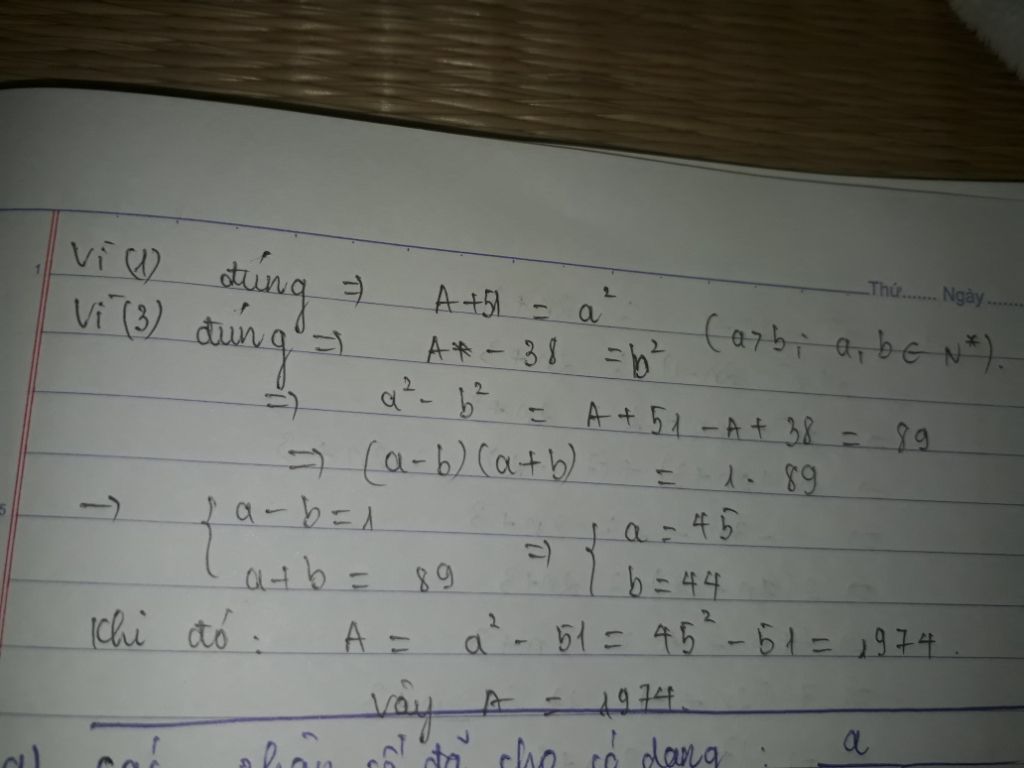 Thứ....... Ngày.......
Vì (1) đúng => A + 51 = a²
Vì (3) đúng => A - 38 = b² (a > b; a, b ∈ N*).
=> a² - b² = A + 51 - A + 38 = 89
=> (a - b)(a + b) = 1. 89
→ { a - b = 1 => { a = 45
a + b = 89 b = 44
Khi đó: A = a² - 51 = 45² - 51 = 1974.
Vậy A = 1974.
phân số đã cho có dạng: a